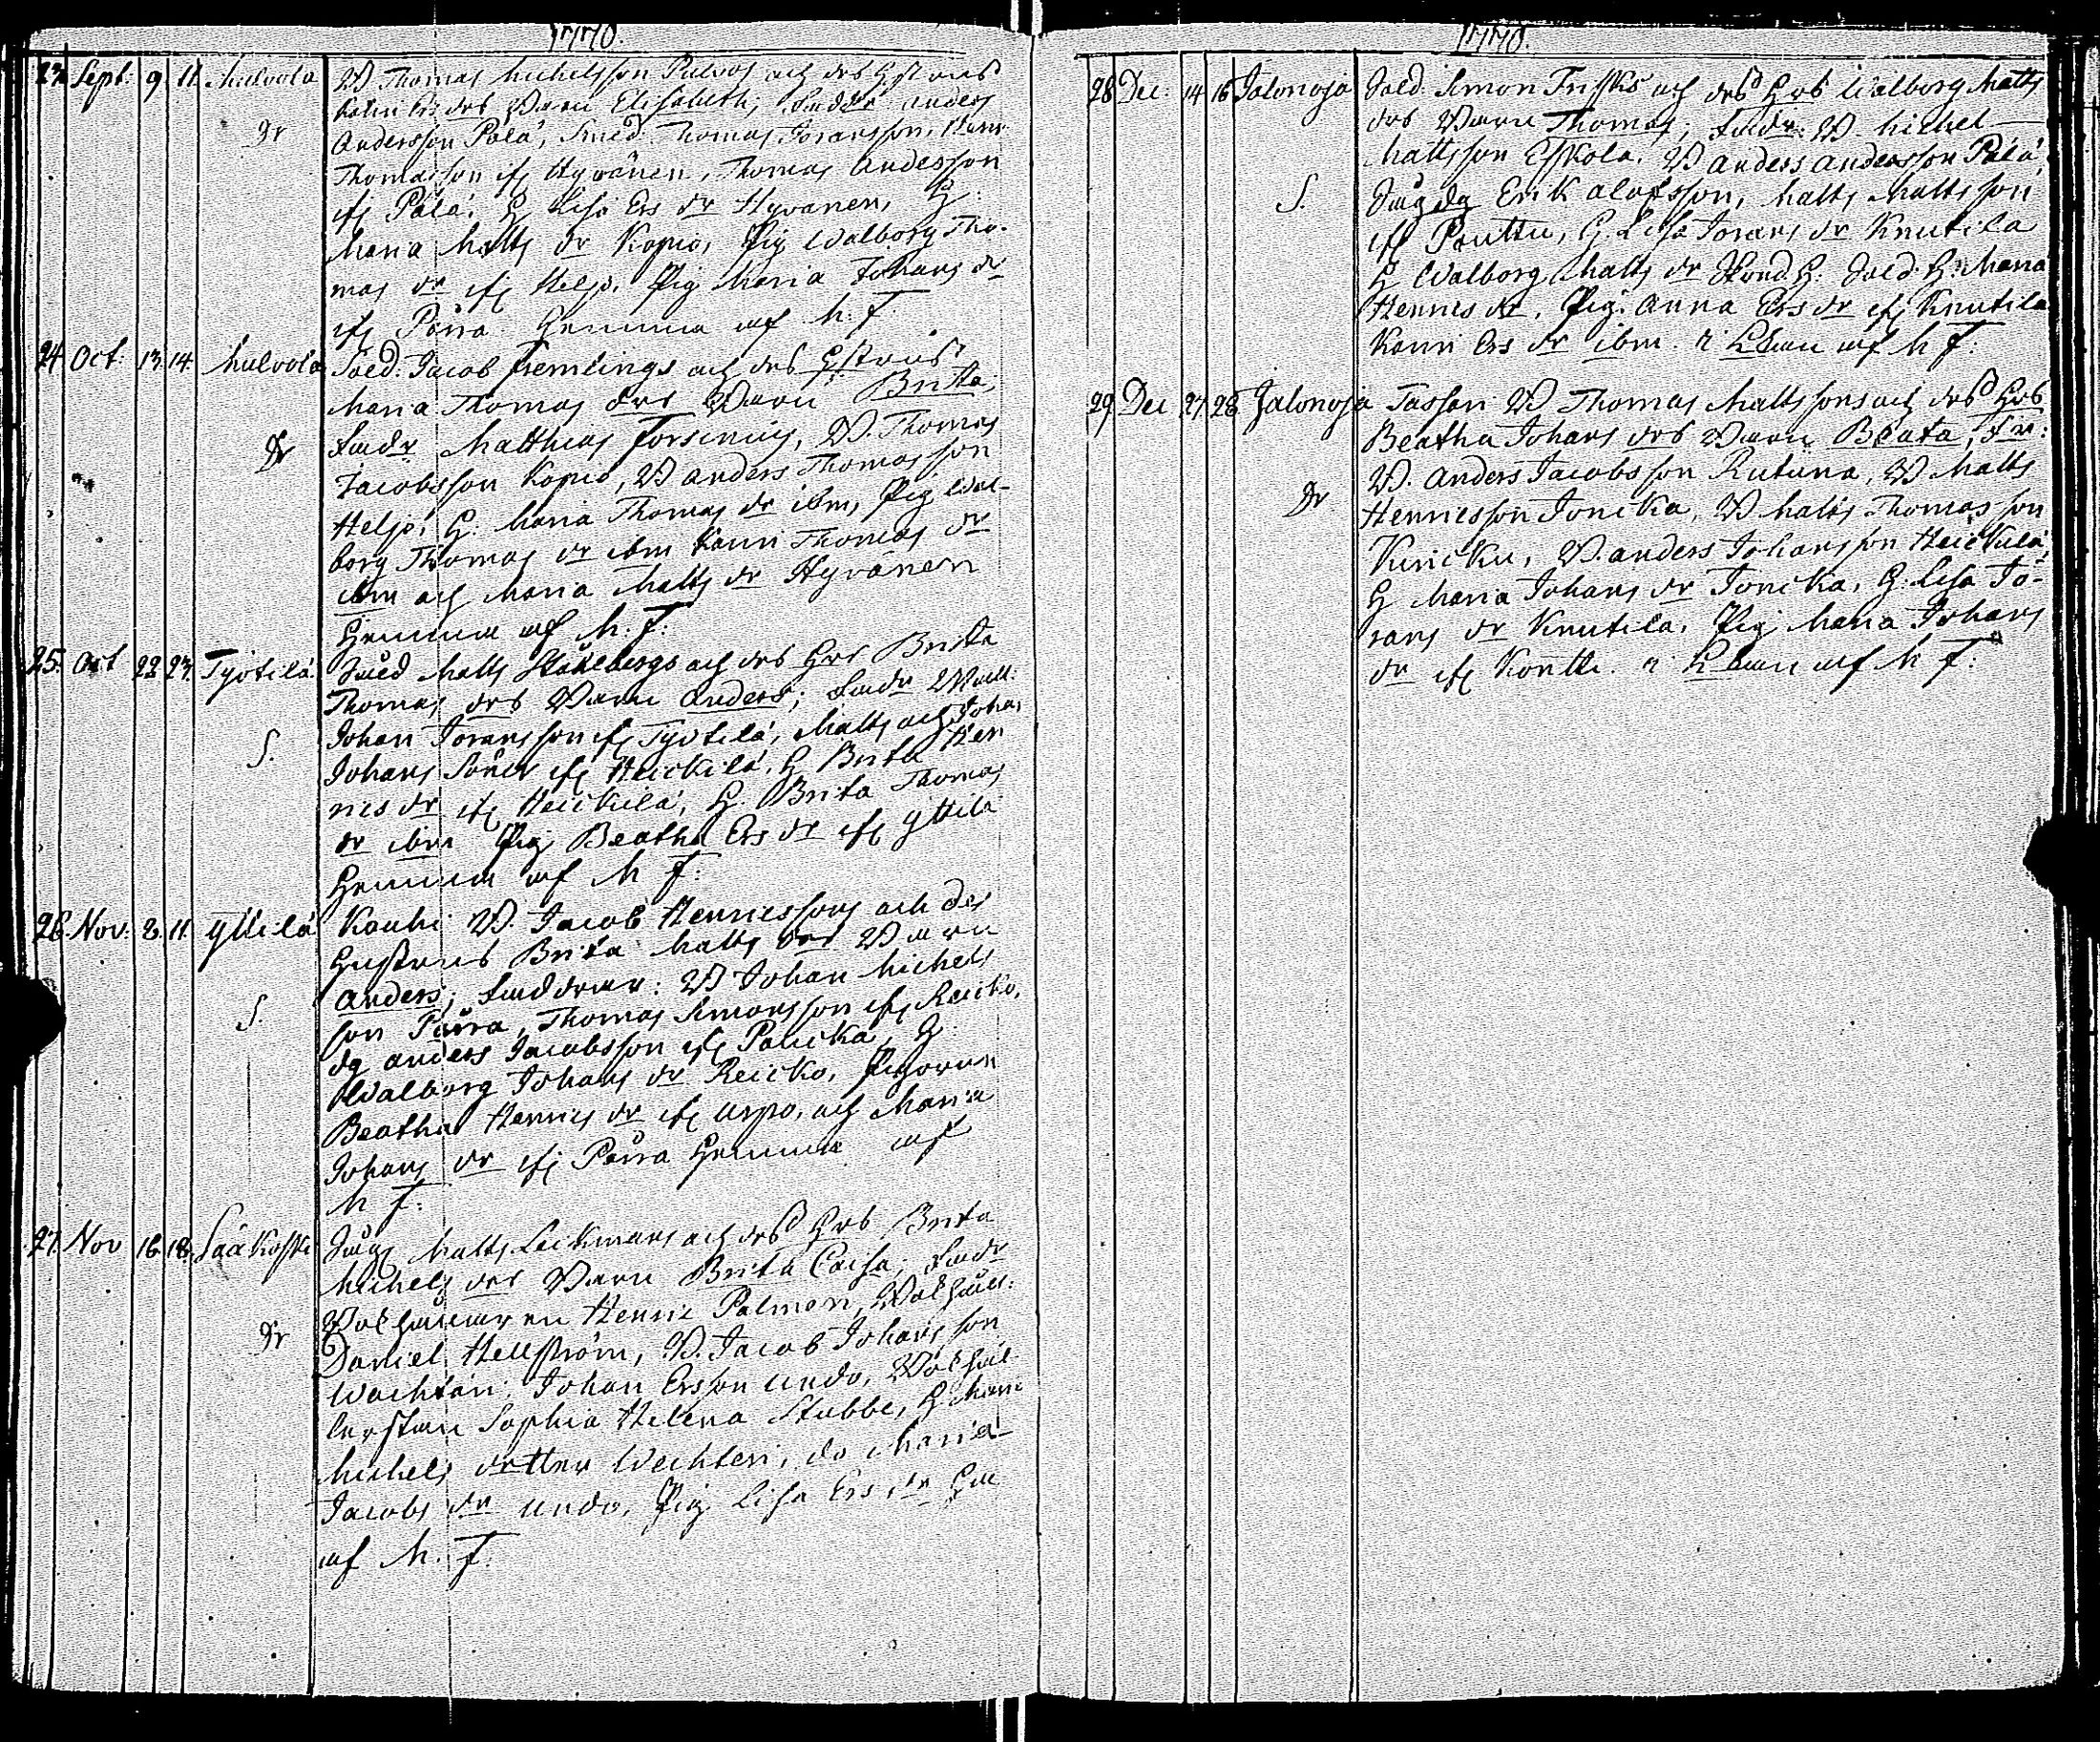 1770.
23. Sept: 9 11. Mulvola W Thomas Michelsson Palvas och des Hustrus
Karin Ers drs Barn Elisabeth; Faddr: Anders
Dr Andersson Pålå, Smed. Thomas Joransson, Henr
Thomasson ifr Hyvänen, Thomas Andersson
ifr Pålå. H Lisa Ers dr Hyvänen, H:
Maria Matts dr Kopio, Pig Walborg Tho-
mas dr ifr Heljo. Pig Maria Johans dr
ifr Parra. Hemma af M: F:
24 Oct: 13. 14. Mulvola Sold. Jacob Fremlings och des Hustrus
Maria Thomas drs Barn Britta;
Dr Faddr Matthias Forsenius, W. Thomas
Jacobsson Kopio, W Anders Thomasson
Heljo, H: Maria Thomas dr ibm, Pig Wal-
borg Thomas dr ibm Karin Thomas dr
ibm och Maria Matts dr Hyvänen
Hemma af M: F:
25. Oct 22 23. Työtilä. Matts Stålbergs och des Hrs Brita
Thomas drs Barn Anders; Faddr
S. Johan Joransson ifr Työtilä, Matts och Johan
Johans Söner ifr Heickilä, H Brita Hen
rics dr ifr Heickilä, H. Brita Thomas
dr ibm Pig Beatha Ers dr ifr Yttilä
Hemma af M F:
26 Nov: 8. 11. Yttilä Kauhi W. Jacob Henricssons och des
Hustrus Brita Matts drs Barn
Anders; Faddrar: W Johan Michels
S. son Parra, Thomas Simonsson ifr Reicko,
dg Anders Jacobsson ifr Palicka, H
Walborg Johans dr Reicko, Pigorna
Beatha Henrics dr ifr Uspo, och Maria
Johans dr ifr Parra Hemma af
M F:
27. Nov 16. 18. Sääkoski Matts Leikmans och des Hrs Brita
Michels drs Barn Brita Caisa, Faddr
Dr Henric Palmen,
Daniel Hellström, W. Jacob Johansson
Wachtari. Johan Ersson Undo,
Sophia Helena Stubbe, H Maria
Michels dotter Wechteri, do Maria
Jacobs dr Undo, Pig. Lisa Ers dr
af M. F:
1770.
28 Dec: 14 16 Jalonoja Sold. Simon Frisks och des Hrs Walborg Matts
drs Barn Thomas; Faddr: W. Michel
Mattsson Eskola. W Anders Andersson Pålå
S. dg Erik Alofsson, Matts Mattsson
ifr Pouttu, H. Lisa Jorans dr Knutila
H Walborg Matts dr H. Sold. H: Maria
Henrics dr, Pig. Anna Ers dr ifr Knutila
Karin Ers dr ibm. i af M F:
29. Dec 27. 28 Jalonoja Tassari W Thomas Mattssons och des Hrs
Beatha Johans drs Barn Beata, Fr:
W. Anders Jacobsson Rutuna, W Matts
Dr Henricsson Joncka, W Matts Thomasson
Kiricku, W. Anders Johansson Heickilä,
H Maria Johans dr Joncka, H: Lisa Jo-
rans dr Knutila. Pig Maria Johans
dr ifr Kontti. i af M F: